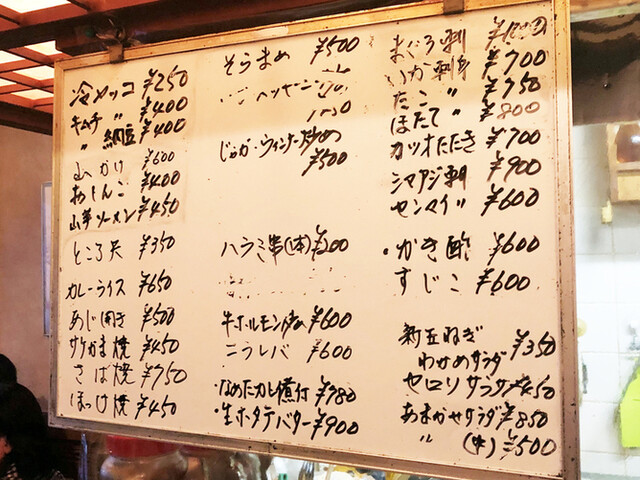 冷ヤッコ ¥250
キムチ 〃 ¥400
〃 納豆 ¥400
山かけ ¥600
おしんこ ¥400
山芋ソーメン ¥450
ところ天 ¥350
カレーライス ¥650
あじ開き ¥500
サケかま焼 ¥450
さば焼 ¥750
ほっけ焼 ¥450
そらまめ ¥500
じゃが・ウィンナー炒め
¥500
ハラミ串(1本) ¥200
牛ホルモン炒め ¥600
ニラレバ ¥600
・なめたカレ煮付 ¥780
・生ホタテバター ¥900
まぐろ刺
いか刺 ¥700
たこ 〃 ¥750
ほたて 〃 ¥800
カツオたたき ¥700
シマアジ刺 ¥900
センマイ 〃 ¥600
・かき酢 ¥600
すじこ ¥600
新玉ねぎ
わかめサラダ ¥350
セロリサラダ ¥450
おまかせサラダ ¥850
〃 (中) ¥500